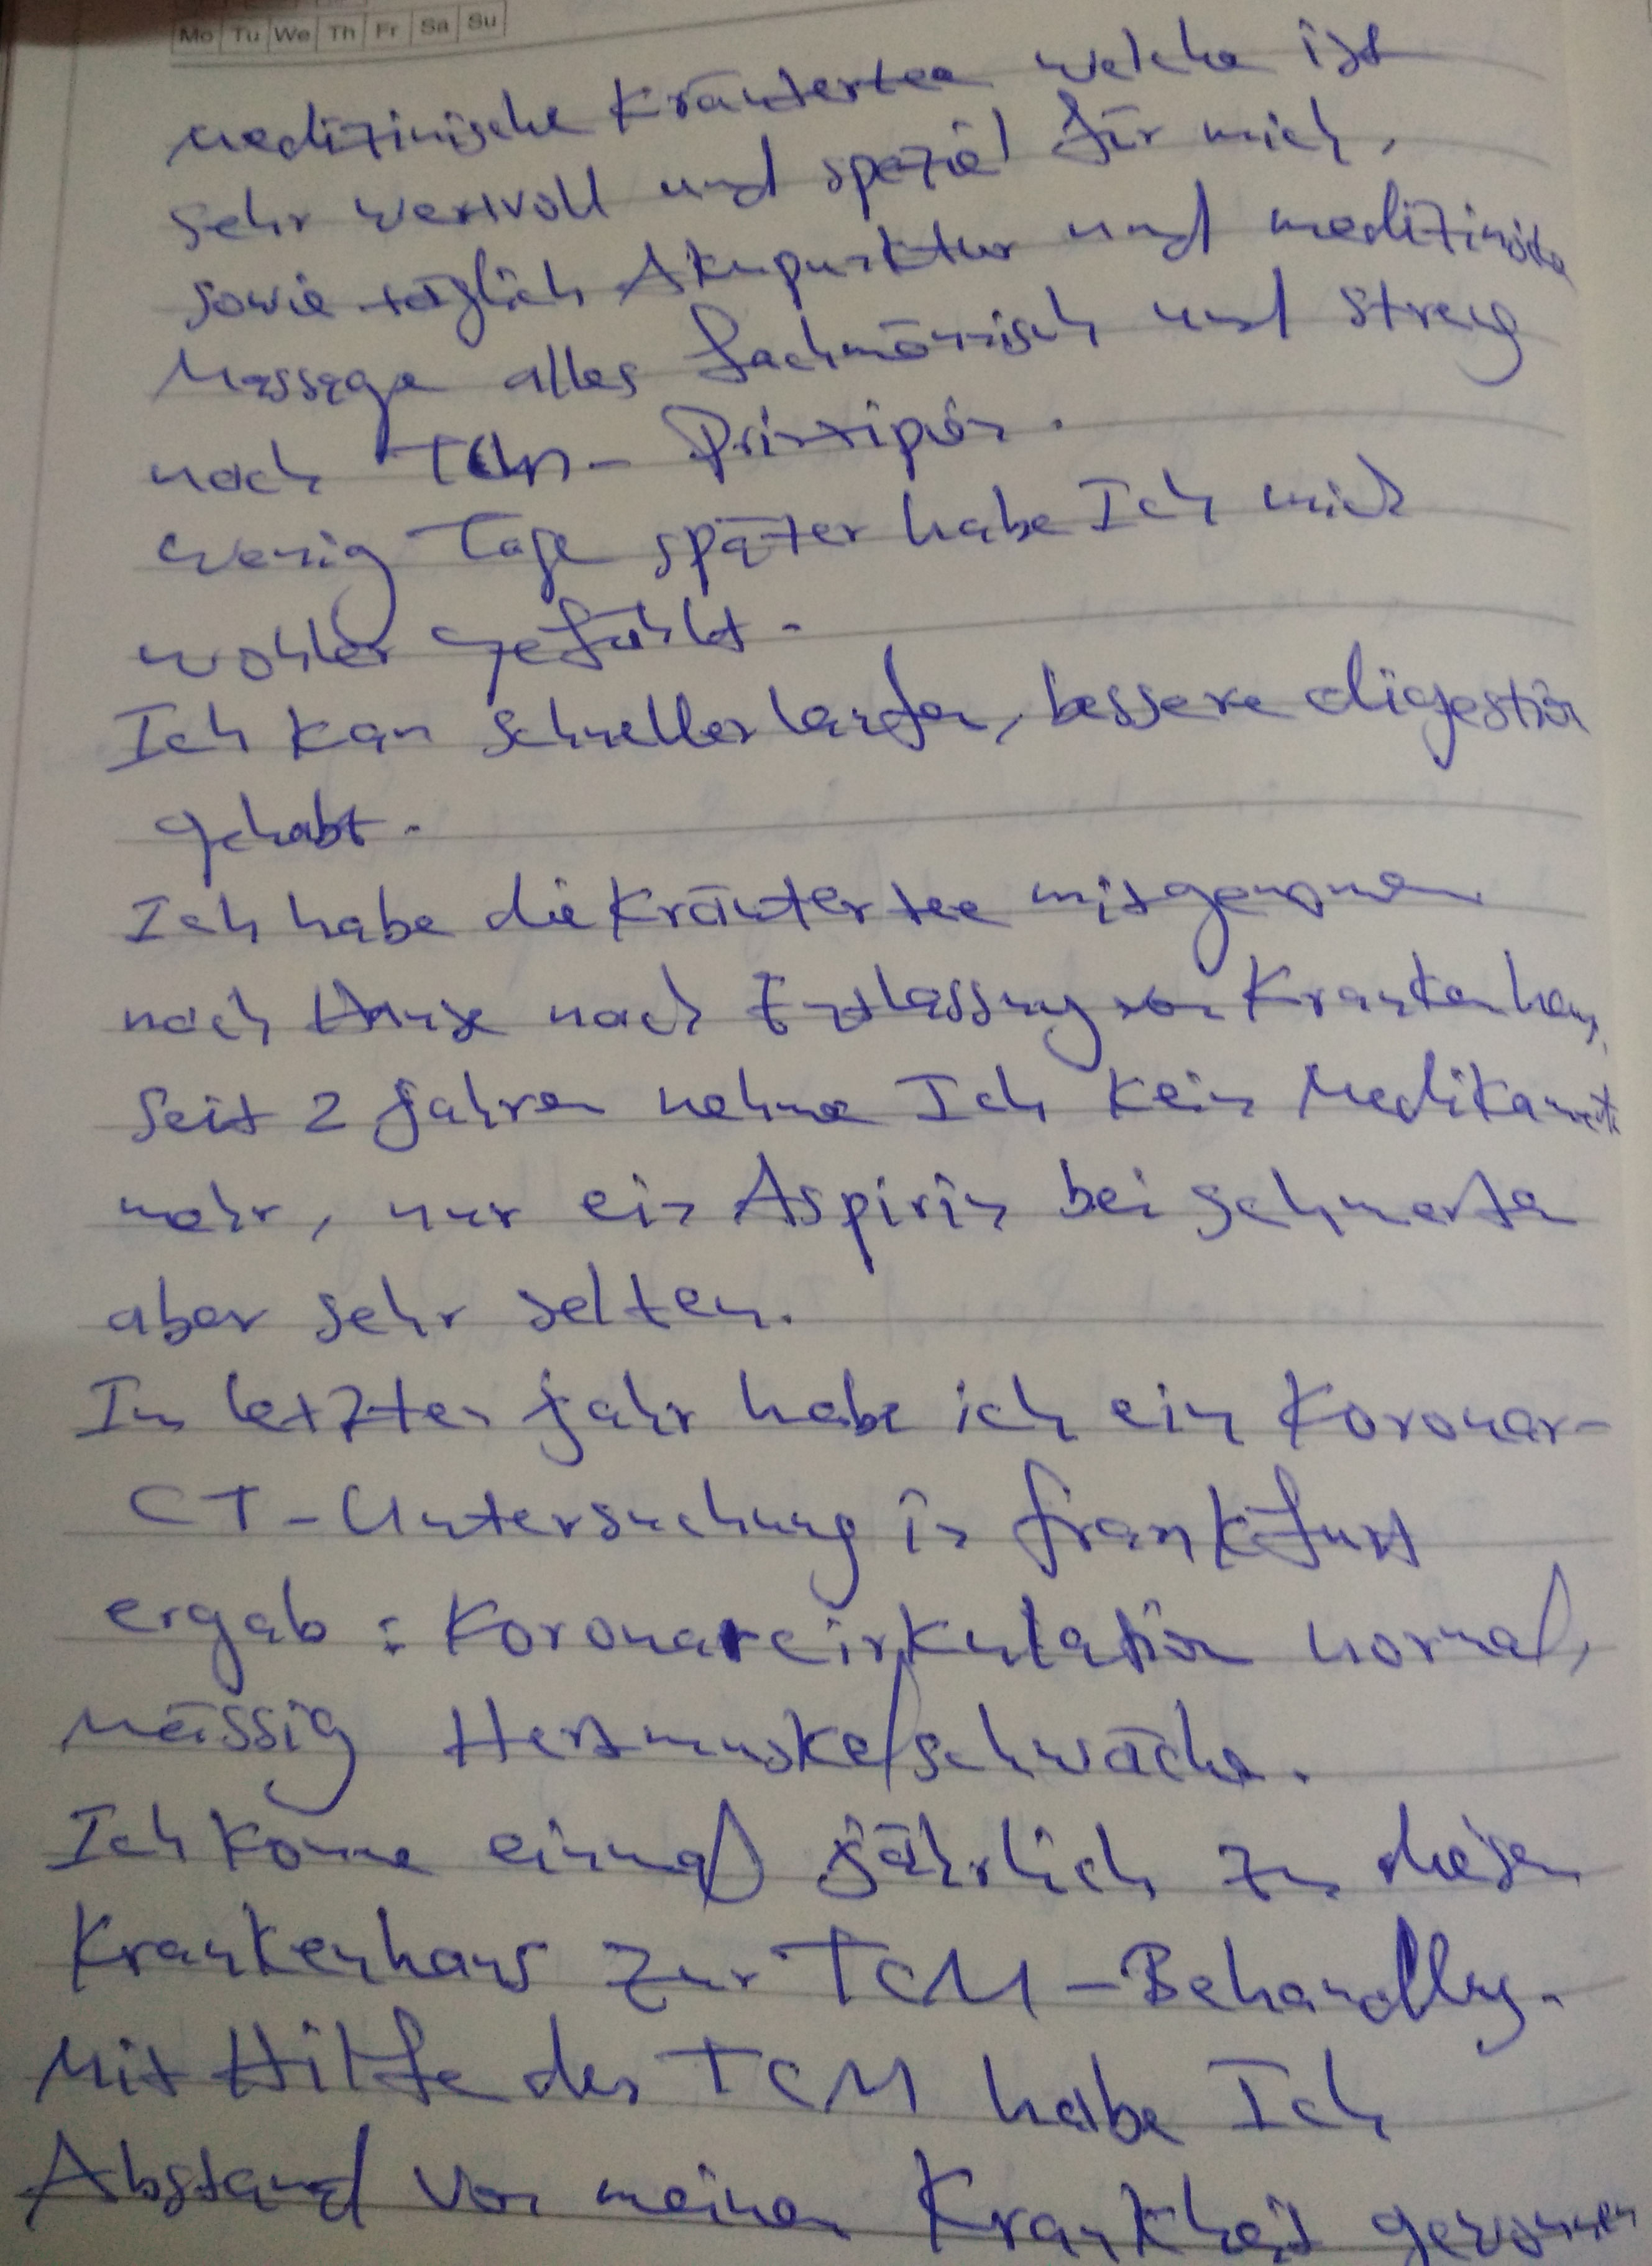 Mo Tu We Th Fr Sa Su
Medizinische Kräutertee welche ist
sehr wertvoll und speziel für mich,
sowie täglich Akupunktur und medizinische
Massage alles fachmännisch und streng
nach TCM- Prinzipien.
wenig Tage später habe Ich mich
wohler gefühlt.
Ich kan schneller laufen, bessere digestion
gehabt.
Ich habe die Kräutertee mitgenomen
nach Hause nach Entlassung von Krankenhaus,
Seit 2 Jahren nehme Ich kein Medikament
mehr, nur ein Aspirin bei schmerzen
aber sehr selten.
In letzten Jahr habe ich ein Koronar-
CT-Untersuchung in Frankfurt
ergab : Koronarcirkulation normal,
mässig Herzmuskelschwäche.
Ich komme einmal jährlich zu diesen
Krankenhaus zur TCM-Behandlung.
Mit Hilfe der TCM habe Ich
Abstand von meinen Krankheit gewonnen